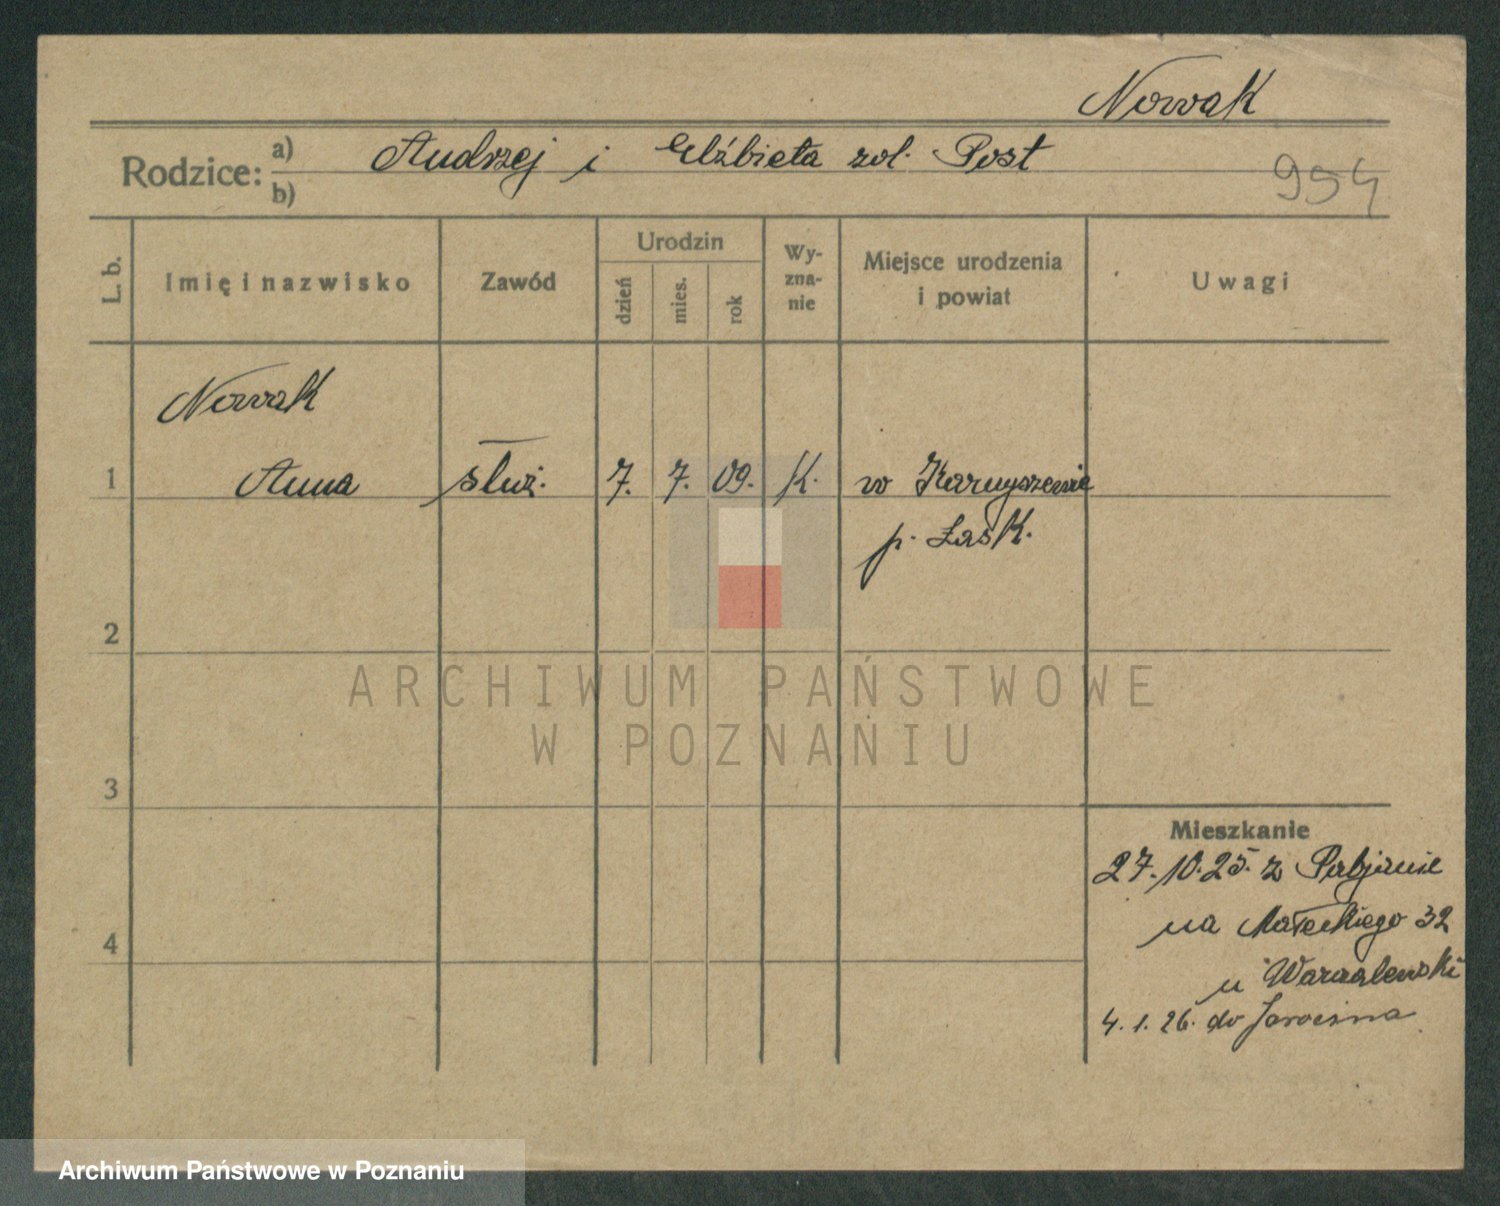 Nowak
Rodzice: a) Andrzej i Elżbieta zol. Post
b)
954
L. b.
Imię i nazwisko
Zawód
Urodzin
dzień
mies.
rok
Wy-
zna-
nie
Miejsce urodzenia
i powiat
Uwagi
Nowak
1 Anna służ. 7. 7. 09. K. w
p. Łask.
2
3
4
Mieszkanie
27.10.25. z Pabjanic
na Małeckiego 32
u
4.1.26. do Jarocina
ARCHIWUM PAŃSTWOWE
W POZNANIU
Archiwum Państwowe w Poznaniu